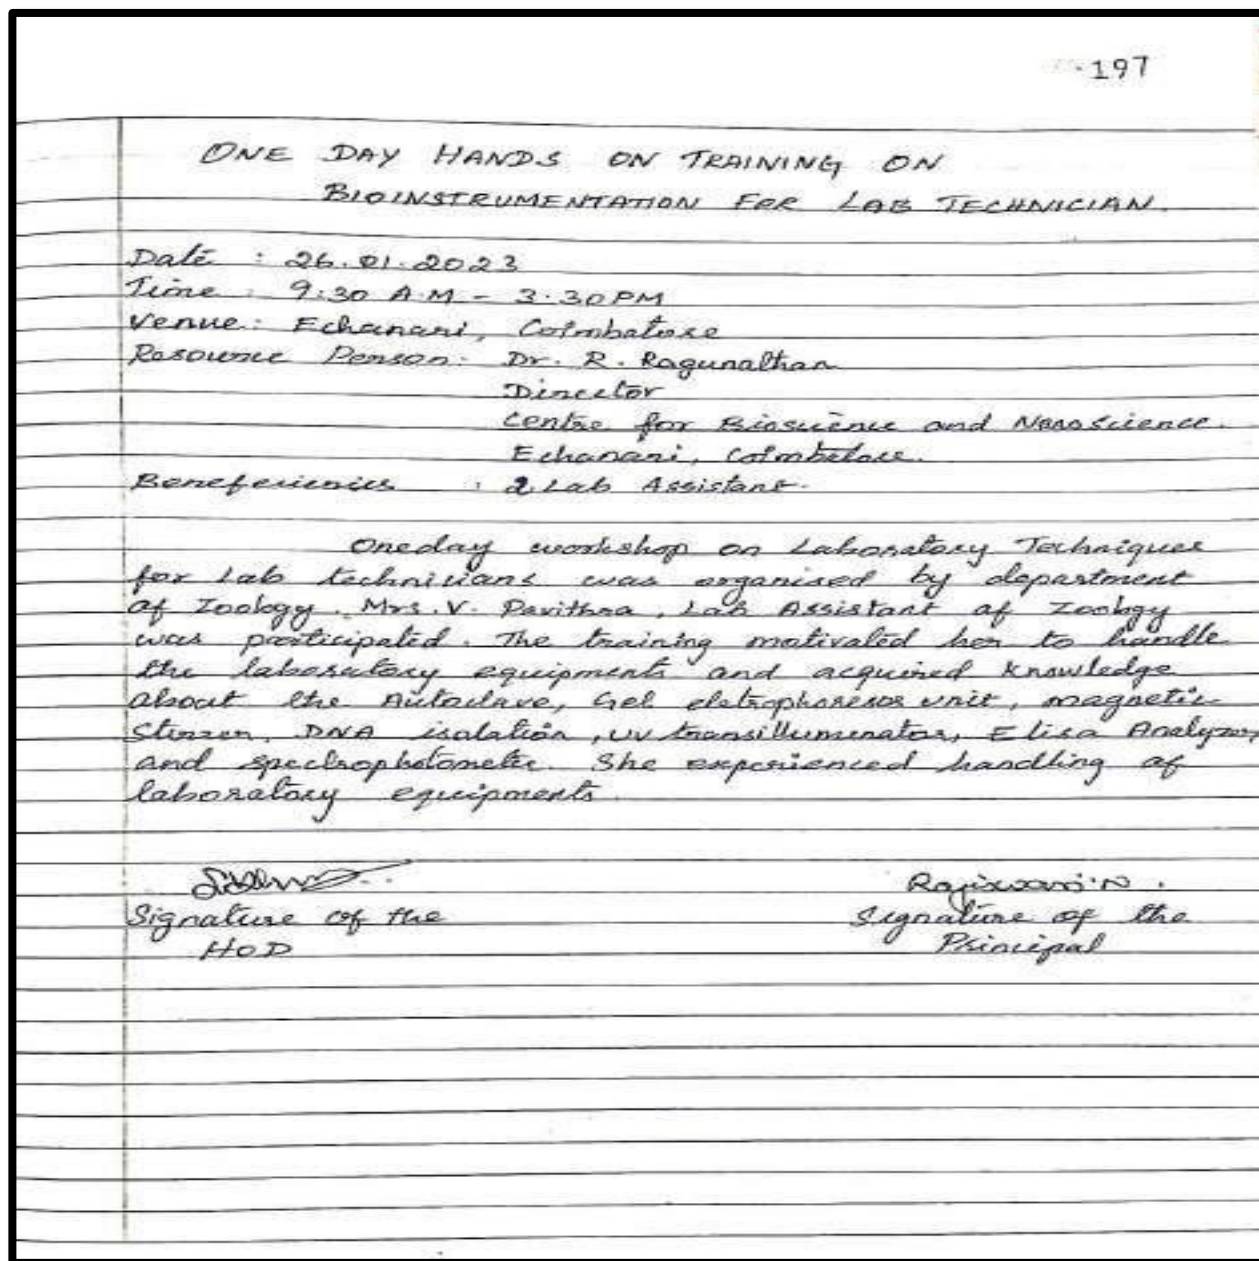 197
ONE DAY HANDS ON TRAINING ON
BIOINSTRUMENTATION FOR LAB TECHNICIAN.
Date : 26.01.2023
Time : 9:30 A.M - 3.30PM
Venue: Echanari, Coimbatore
Resource Person: Dr. R. Ragunathan
Director
Centre for Bioscience and Nanoscience.
Echanari, Coimbatore.
Beneficiaries : 2 Lab Assistant.
Oneday workshop on Laboratory Techniques
for Lab technicians was organised by department
of Zoology. Mrs. V. Pavithra, Lab Assistant of Zoology
was participated. The training motivated her to handle
the laboratory equipments and acquired knowledge
about the Autoclave, Gel eletrophoresis unit, magnetic
Stirrer, DNA isolation, UV transilluminator, Elisa Analyzer,
and spectrophotometer. She experienced handling of
laboratory equipments.
Rajiswari.N.
Signature of the
HOD
Signature of the
Principal